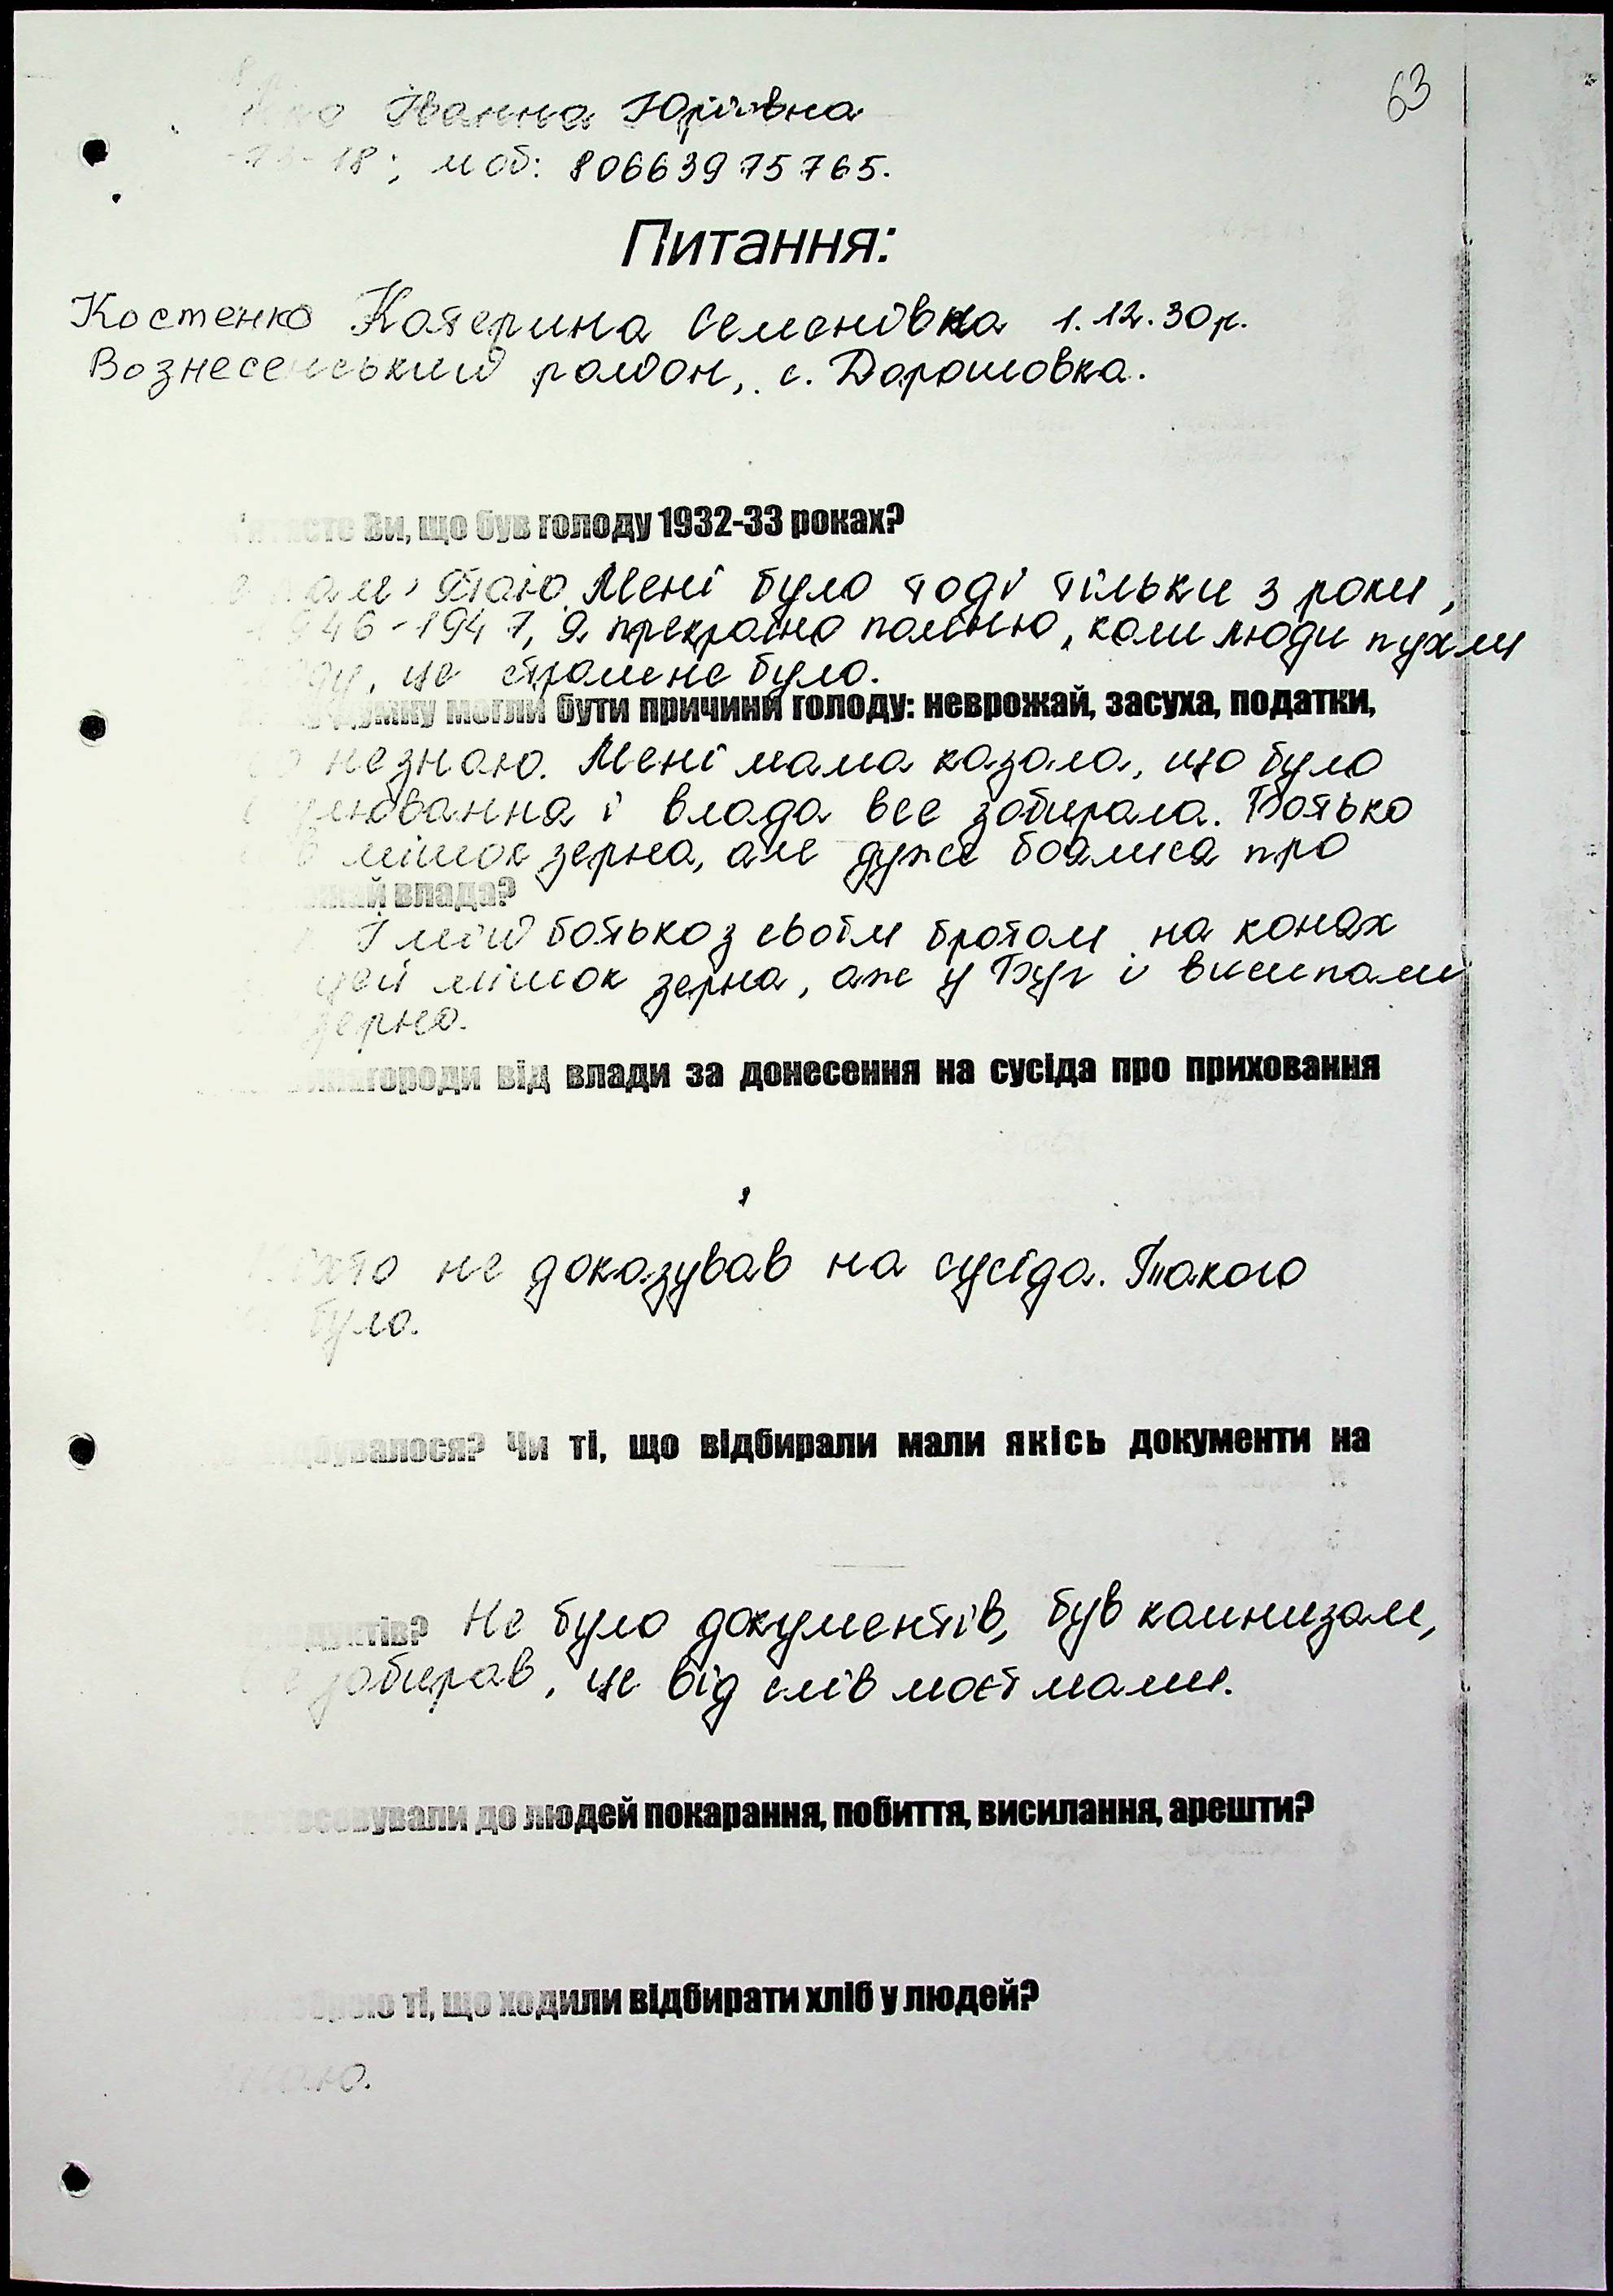 63
Іванна Юріївна
18; моб: 80663975765.
Питання:
Костенко Катерина Семенівна 1.12.30р.
Вознесенський район, с. Дорошовка.
Ви, що був голоду 1932-33 роках?
Мені було тоді тільки 3 роки,
1946-1947, я прекрасно помню, коли люди пухли
це страшне було.
думку могли бути причини голоду: неврожай, засуха, податки,
не знаю. Мені мама казала, що було
і влада все забирала. Батько
мішок зерна, але дуже боялися про
влада?
І мій батько з своїм братом на конях
цей мішок зерна, аж у Буг і висипали
зерно.
від влади за донесення на сусіда про приховання
не доказував на сусіда. Такого
було.
Чи ті, що відбирали мали якісь документи на
Не було документів, був коммнизам,
забирав, це від слів моєї мами.
до людей покарання, побиття, висилання, арешти?
ті, що ходили відбирати хліб у людей?